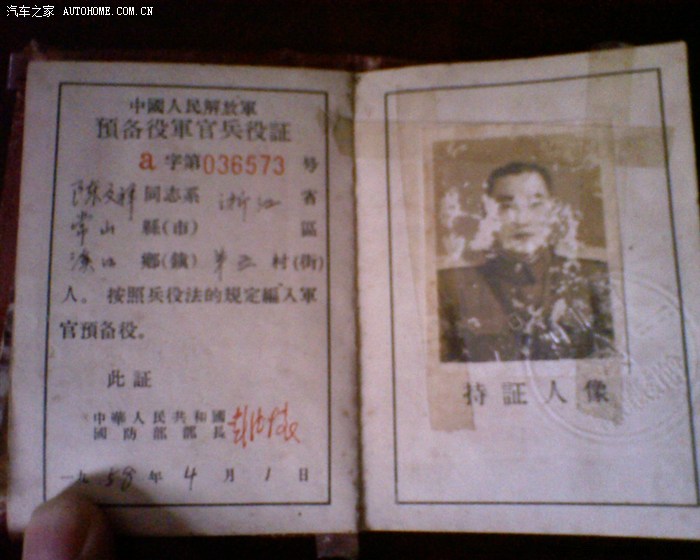 汽车之家 AUTOHOME.COM.CN
中國人民解放軍
預备役軍官兵役証
a 字第036573 号
陈文祥 同志系 浙江 省
常山 縣(市) 區
鄉(鎮) 第 村(街)
人。按照兵役法的規定編入軍
官預备役。
此証
中華人民共和國
國防部部長
一九58年4月1日
持証人像